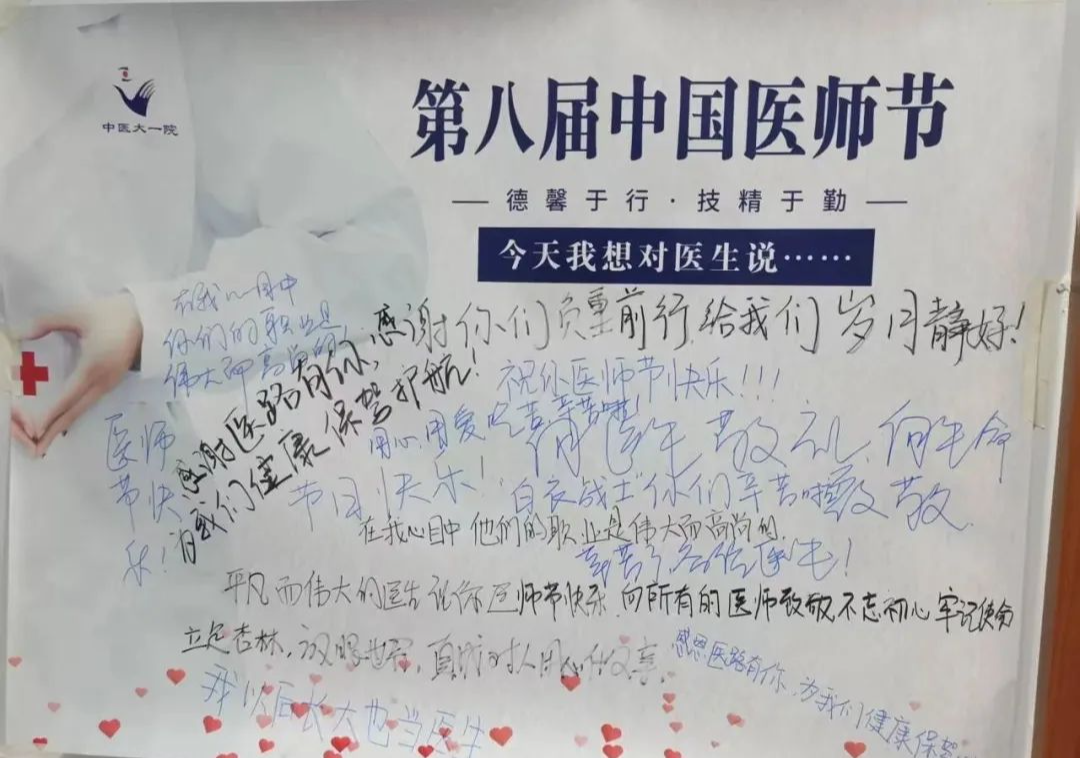 中医大一院
第八届中国医师节
德馨于行·技精于勤
今天我想对医生说……
在我心目中
你们的职业是
伟大而高尚的
感谢你们负重前行,给我们岁月静好!
感谢医路有你,
为我们健康保驾护航!
祝你医师节快乐!!!
医师
节快
乐!
用心用爱
辛苦啦!
向医生敬礼,向生命
致敬
节日快乐!
白衣战士你们辛苦啦
在我心目中他们的职业是伟大而高尚的.
辛苦了各位医生!
平凡而伟大的医生 祝你医师节快乐 向所有的医师致敬 不忘初心 牢记使命
立足杏林,放眼世界,真诚对人用心
感恩医路有你,为我们健康保驾
我以后长大也当医生